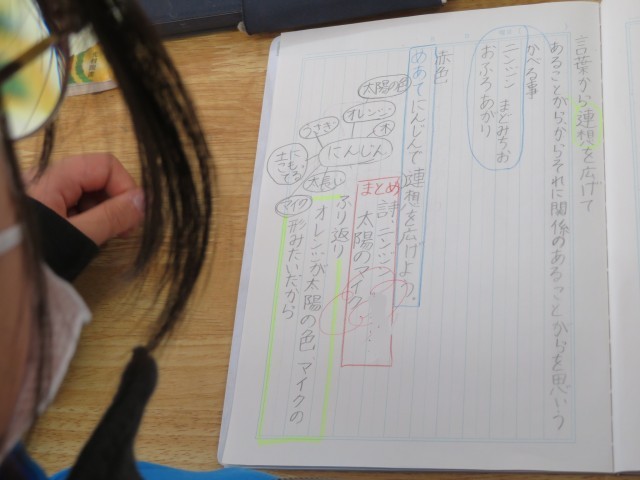 言葉から連想を広げて
あることがらからそれに関係のあることがらを思いう
かべる事
ニンジン まどみちお
おふろあがり
赤色
めあて にんじんで連想を広げよう。
太陽の色
オレンジ
木
うさぎ
にんじん
土にもぐってる
太長い
マイク
まとめ
詩:ニンジン
太陽のマイク
ふり返り
オレンジが太陽の色 マイクの
形みたいだから